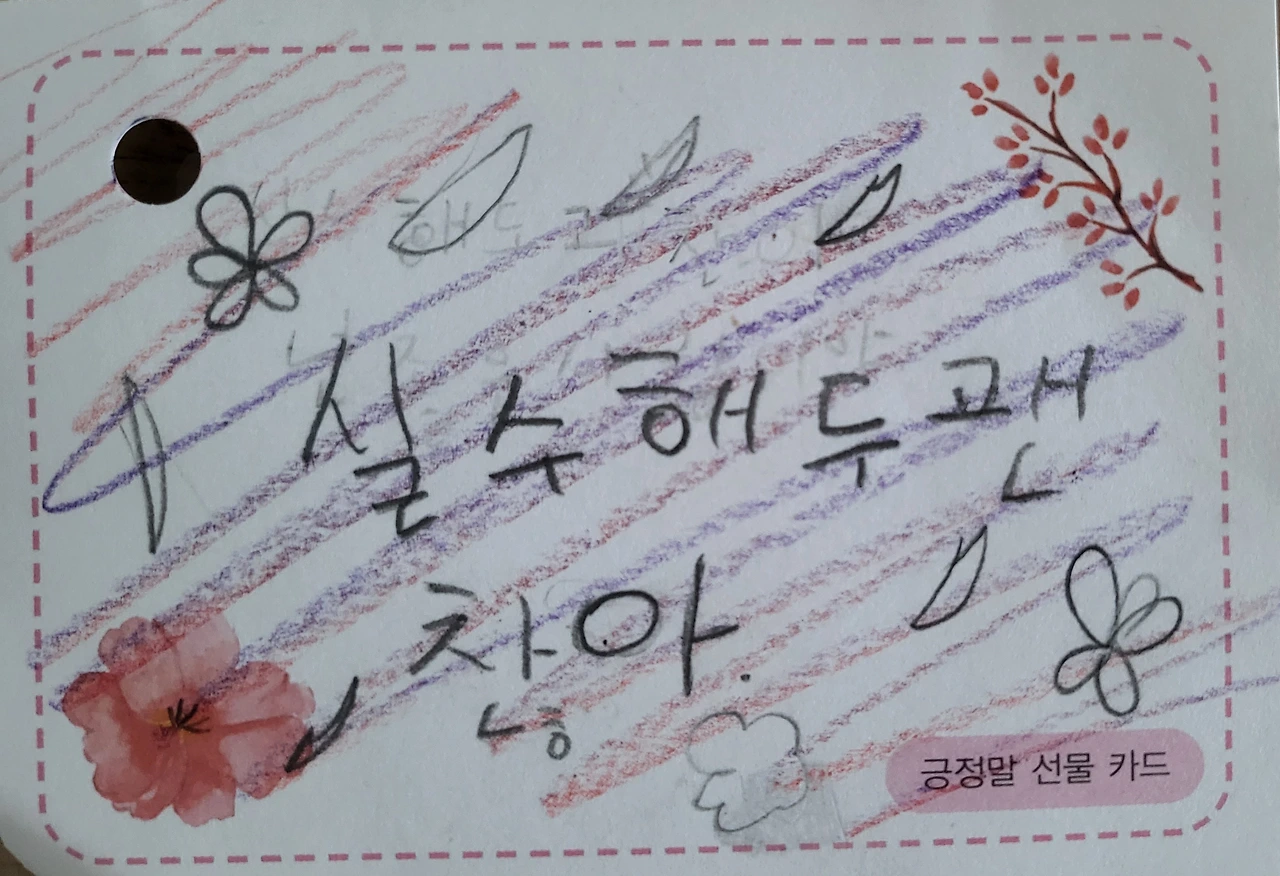 실수해두괜
찮아.
긍정말 선물 카드